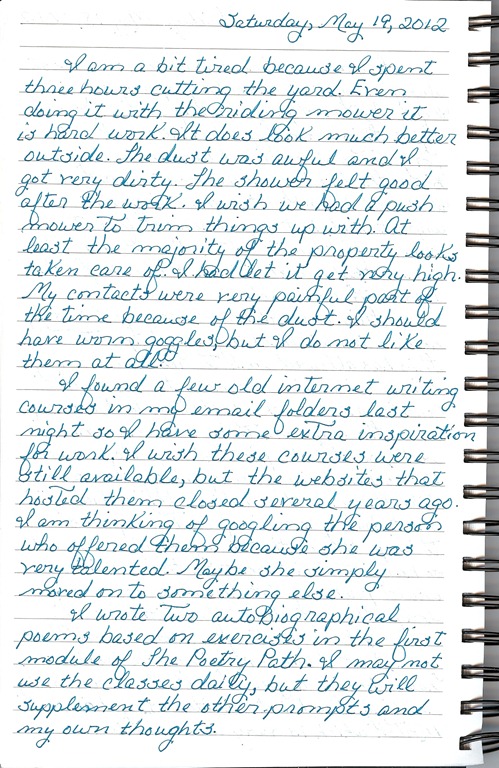 Saturday, May 19, 2012
I am a bit tired because I spent
three hours cutting the yard. Even
doing it with the riding mower it
is hard work. It does look much better
outside. The dust was awful and I
got very dirty. The shower felt good
after the work. I wish we had a push
mower to trim things up with. At
least the majority of the property looks
taken care of. I had let it get very high.
My contacts were very painful part of
the time because of the dust. I should
have worn goggles, but I do not like
them at all.
I found a few old internet writing
courses in my email folders last
night so I have some extra inspiration
for work. I wish these courses were
still available, but the websites that
hosted them closed several years ago.
I am thinking of googling the person
who offered them because she was
very talented. Maybe she simply
moved on to something else.
I wrote two autobiographical
poems based on exercises in the first
module of The Poetry Path. I may not
use the classes daily, but they will
supplement the other prompts and
my own thoughts.